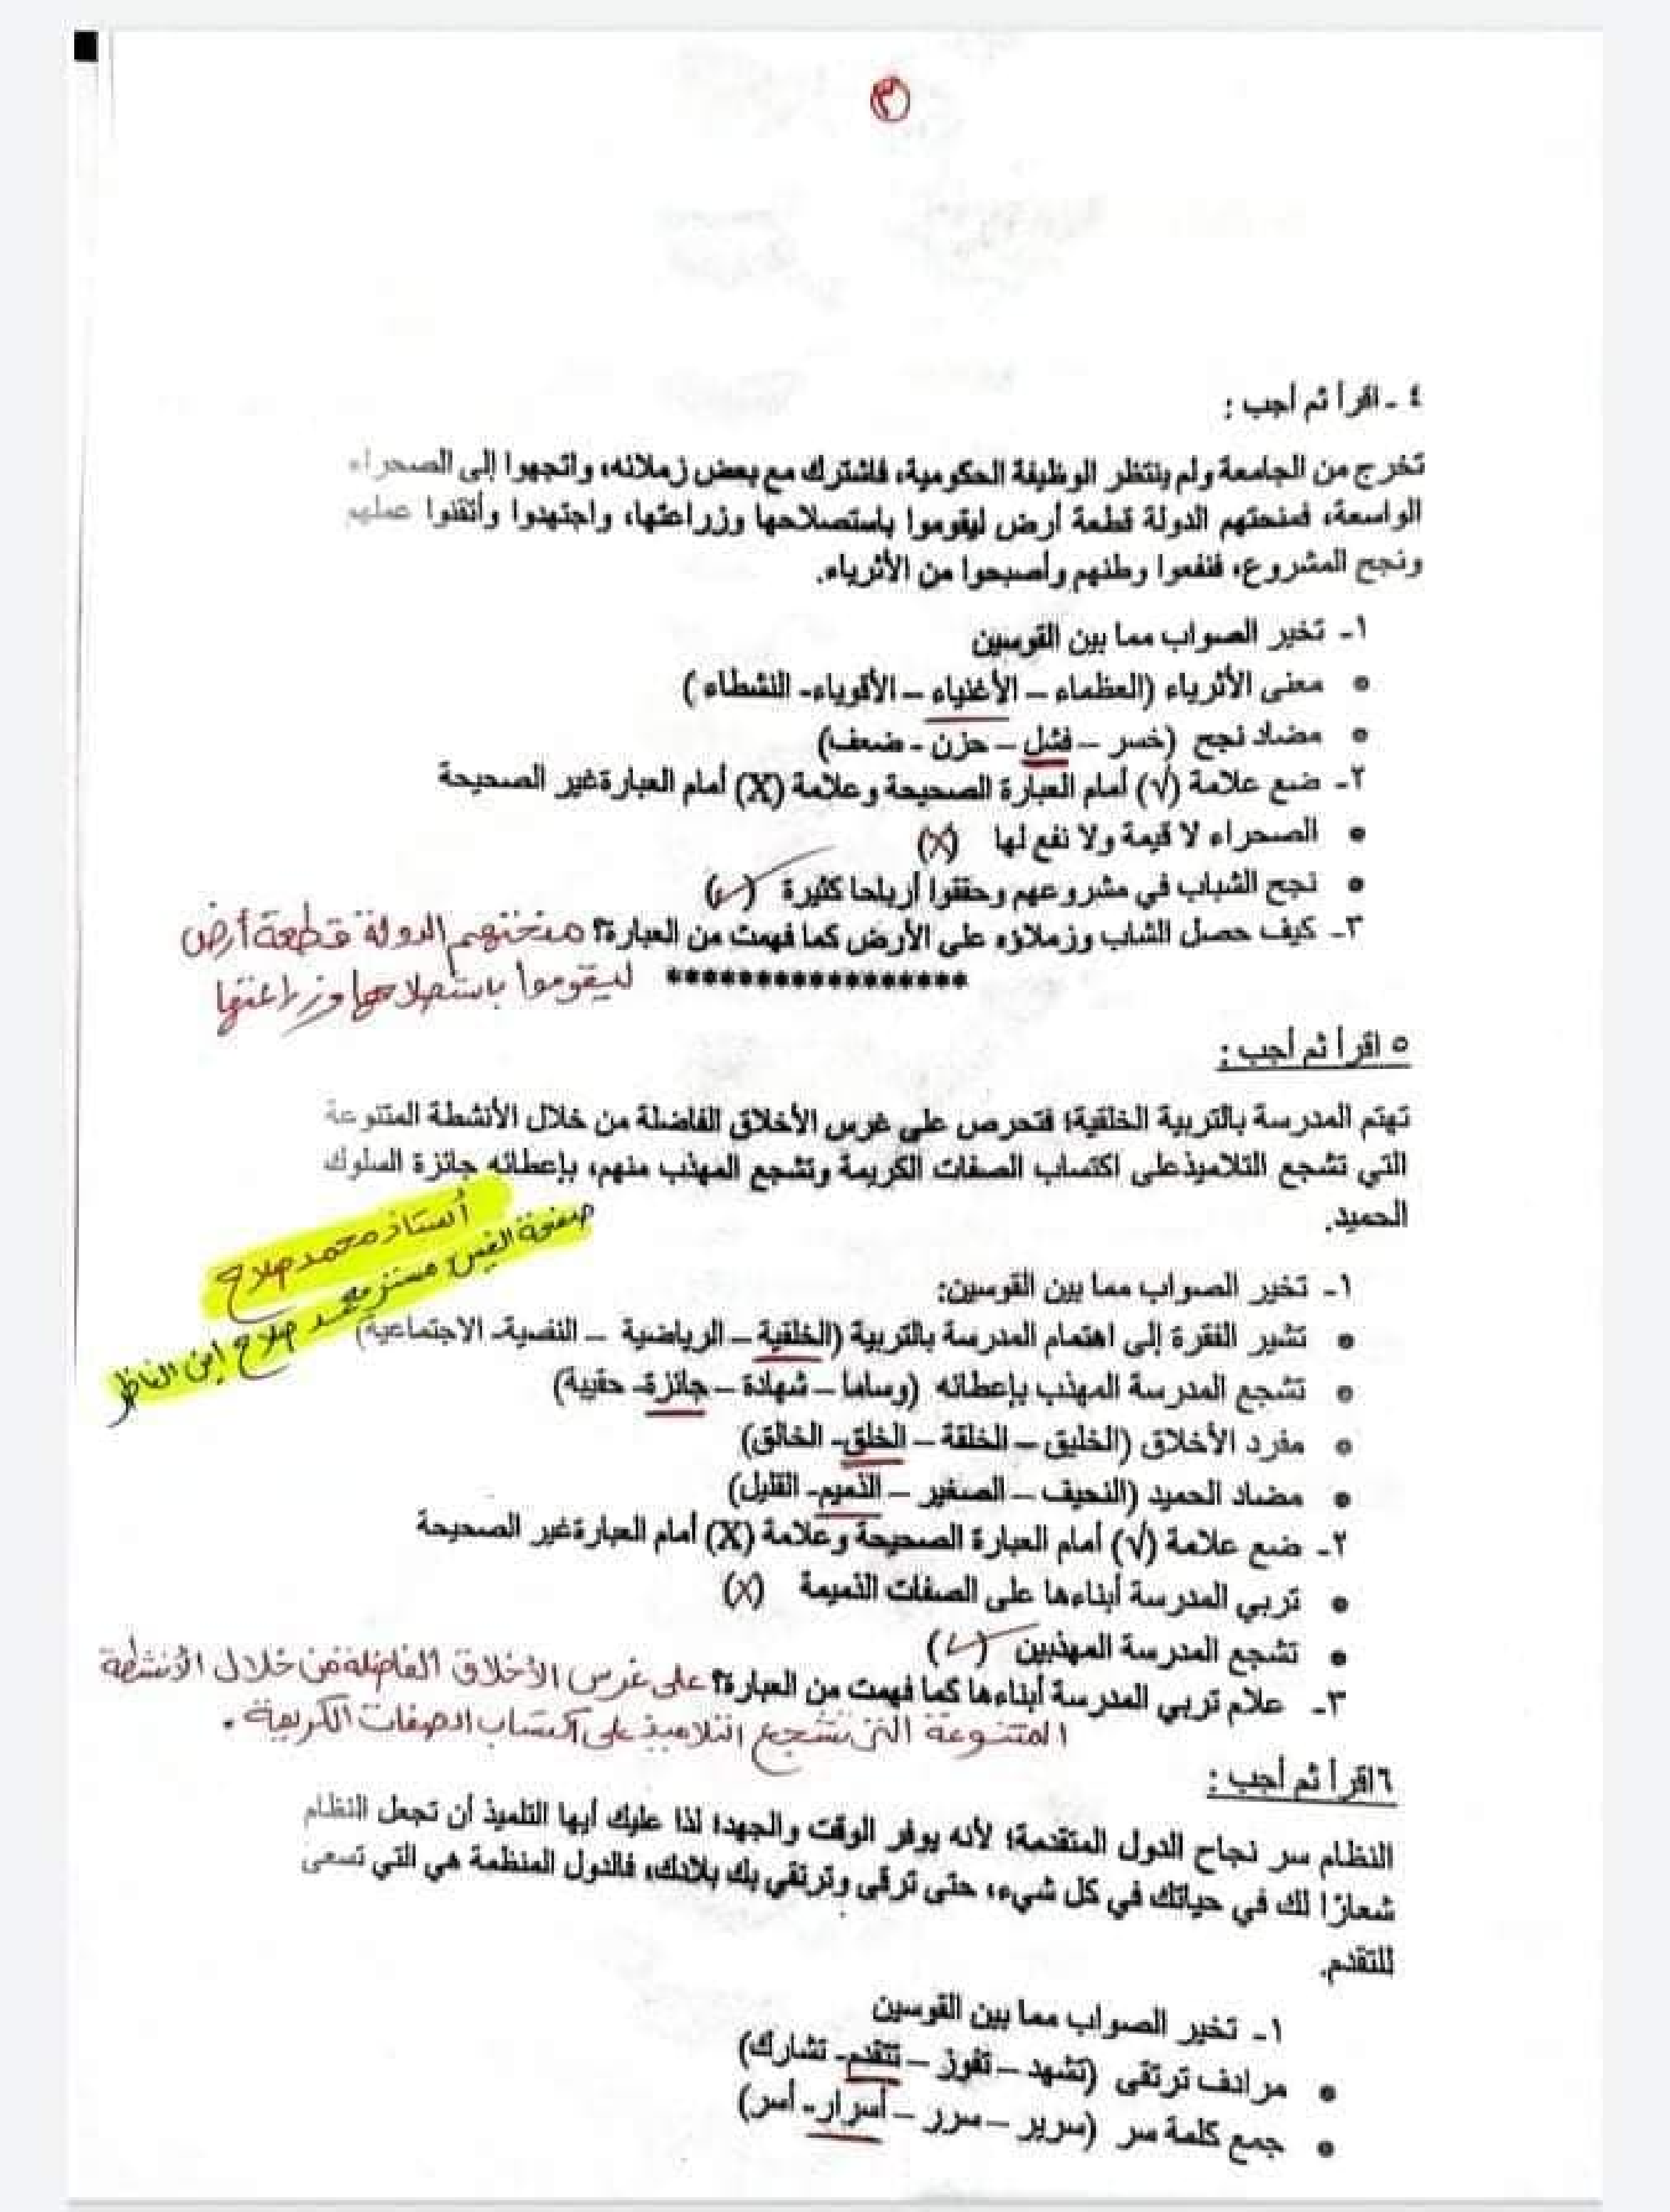 ٣
٤ - اقرأ ثم أجب :
تخرج من الجامعة ولم ينتظر الوظيفة الحكومية، فاشترك مع بعض زملائه، واتجهوا إلى الصحراء
الواسعة، فمنحتهم الدولة قطعة أرض ليقوموا باستصلاحها وزراعتها، واجتهدوا وأتقنوا عملهم
ونجح المشروع، فنفعوا وطنهم وأصبحوا من الأثرياء.
١- تخير الصواب مما بين القوسين
• معنى الأثرياء (العظماء – الأغنياء – الأقوياء- النشطاء )
• مضاد نجح (خسر – فشل – حزن - ضعف)
٢- ضع علامة (√) أمام العبارة الصحيحة وعلامة (X) أمام العبارةغير الصحيحة
• الصحراء لا قيمة ولا نفع لها (X)
• نجح الشباب في مشروعهم وحققوا أرباحا كثيرة (✓)
٣- كيف حصل الشاب وزملاؤه على الأرض كما فهمت من العبارة؟ منحتهم الدولة قطعة أرض
ليقوموا باستصلاحها وزراعتها
******************
٥ اقرأ ثم أجب :
تهتم المدرسة بالتربية الخلقية؛ فتحرص على غرس الأخلاق الفاضلة من خلال الأنشطة المتنوعة
التي تشجع التلاميذعلى اكتساب الصفات الكريمة وتشجع المهذب منهم، بإعطائه جائزة السلوك
الحميد.
أستاذ محمد صلاح
صفحة الفيس مستر محمد صلاح ابن الناظر
١- تخير الصواب مما بين القوسين:
• تشير الفقرة إلى اهتمام المدرسة بالتربية (الخلقية – الرياضية – النفسية- الاجتماعية)
• تشجع المدرسة المهذب بإعطائه (وساما – شهادة – جائزة- حقيبة)
• مفرد الأخلاق (الخليق – الخلقة – الخلق- الخالق)
• مضاد الحميد (النحيف – الصغير – الذميم- القليل)
٢- ضع علامة (√) أمام العبارة الصحيحة وعلامة (X) أمام العبارةغير الصحيحة
• تربي المدرسة أبناءها على الصفات الذميمة (X)
• تشجع المدرسة المهذبين (✓)
٣- علام تربي المدرسة أبناءها كما فهمت من العبارة؟ على غرس الأخلاق الفاضلة من خلال الأنشطة
المتنوعة التي تشجع التلاميذ على اكتساب الصفات الكريمة .
٦اقرأ ثم أجب :
النظام سر نجاح الدول المتقدمة؛ لأنه يوفر الوقت والجهد؛ لذا عليك أيها التلميذ أن تجعل النظام
شعارًا لك في حياتك في كل شيء، حتى ترقى وترتقي بك بلادك، فالدول المنظمة هي التي تسعى
للتقدم.
١- تخير الصواب مما بين القوسين
• مرادف ترتقى (تشهد – تفوز – تتقدم- تشارك)
• جمع كلمة سر (سرير – سرر – أسرار- أسر)